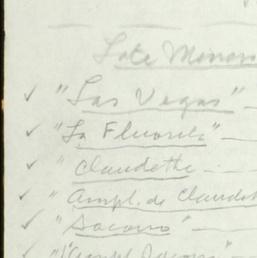 Lote Monor
✓ "Las Vegas" -
✓ "La Fluorita" -
✓ " Claudette -
" Ampl. de Claudet
✓ "Socorro" -